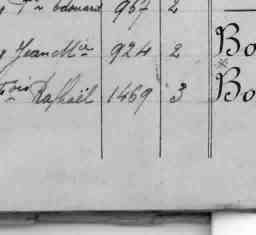 Édouard 967 2
Jean Mie 924 2 Bo
fois Raphaël 1469 3 Bo